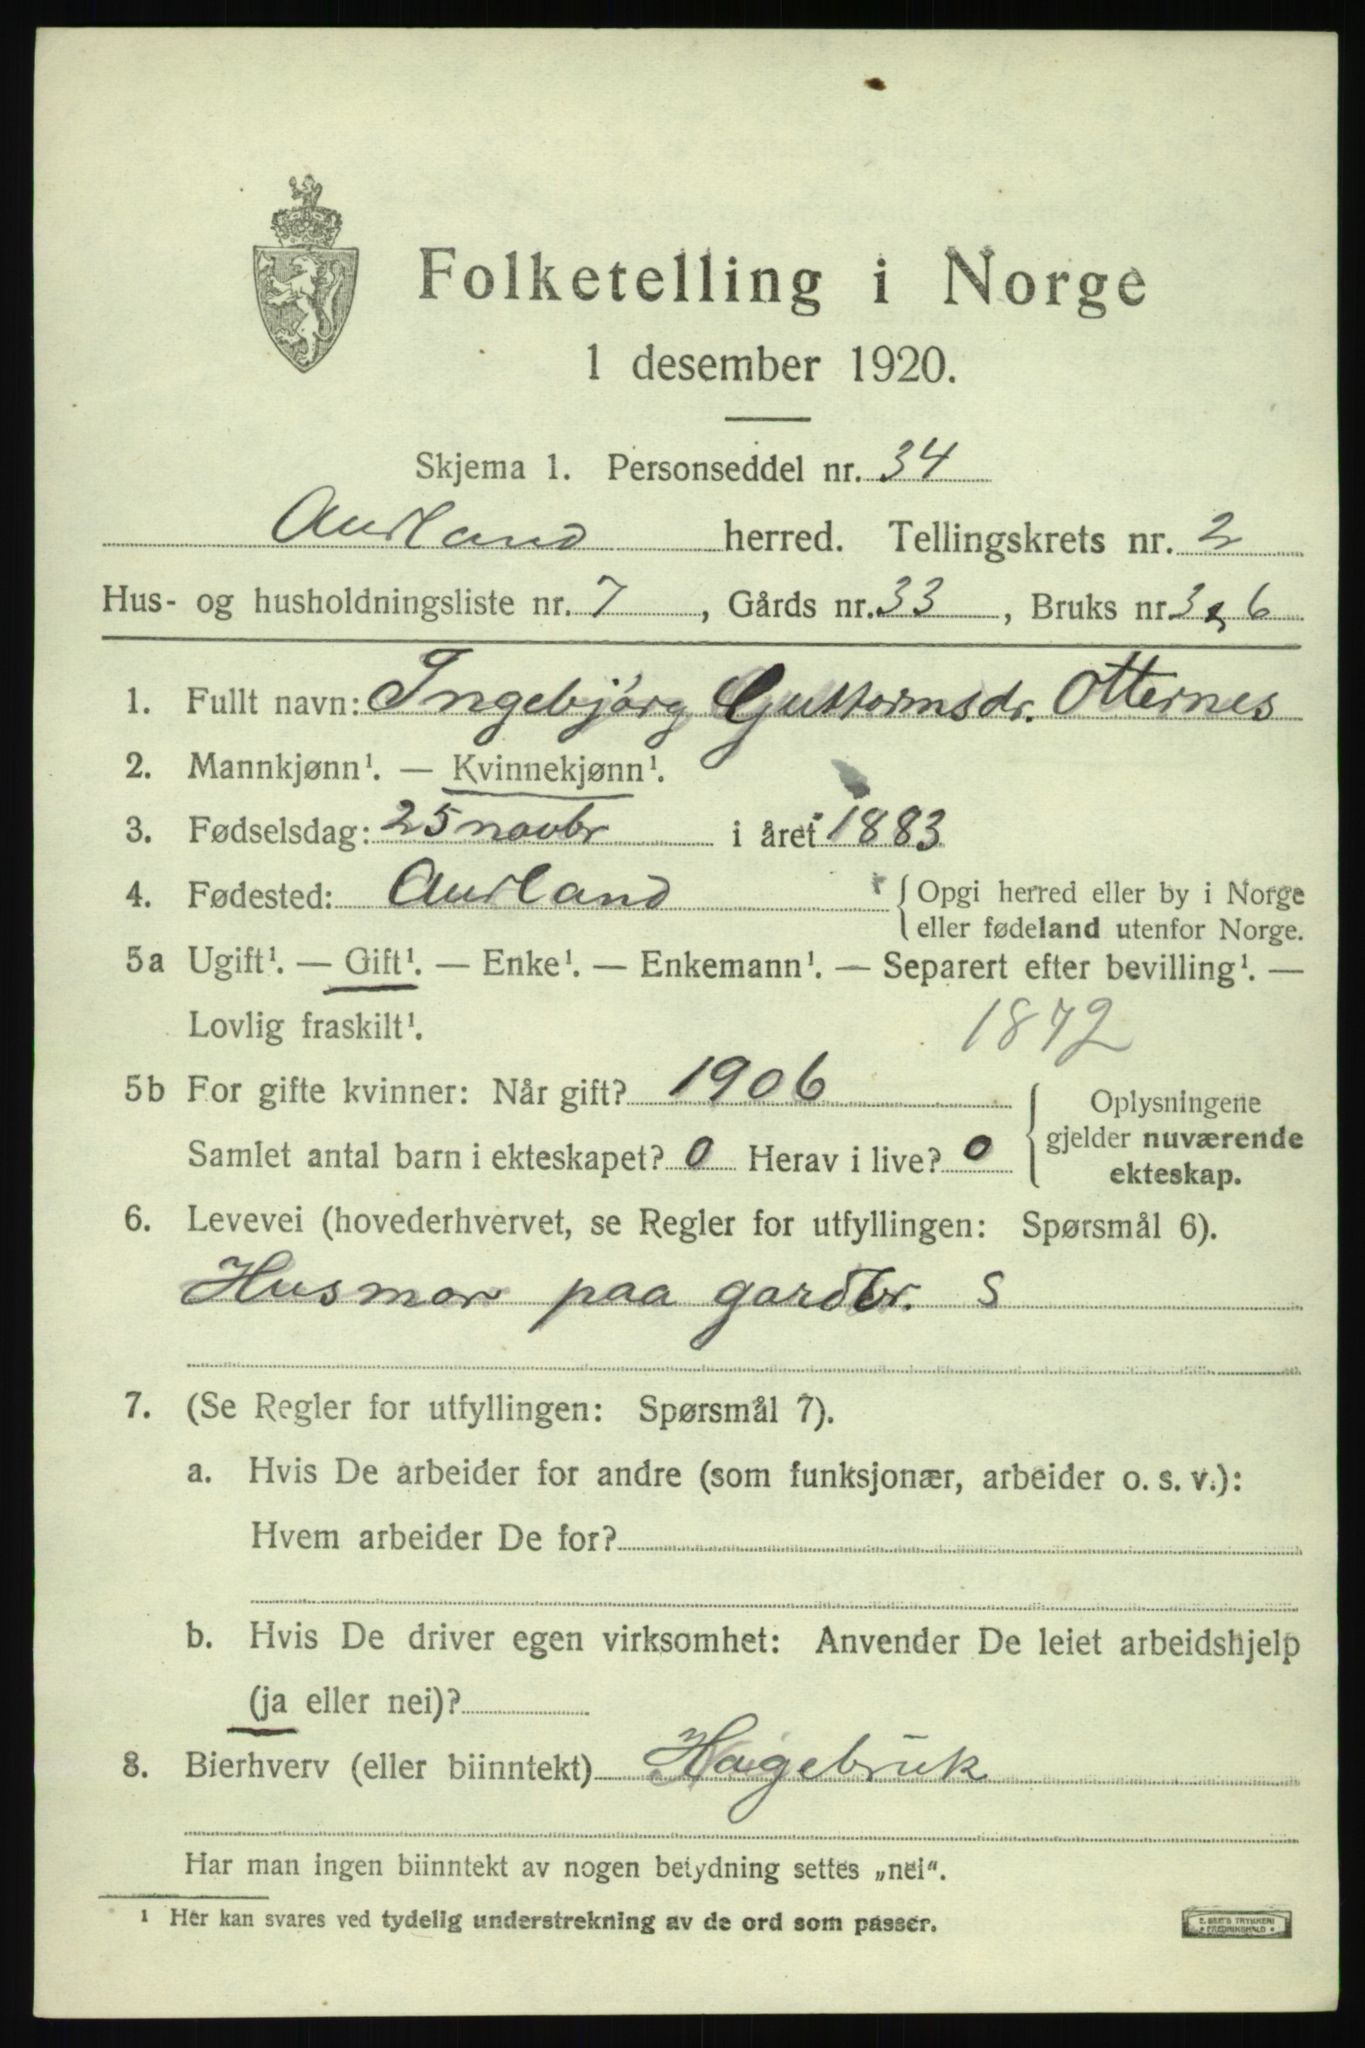 Folketelling i Norge
1 desember 1920.
Skjema 1. Personseddel nr. 34
Aurland herred. Tellingskrets nr. 2
Hus- og husholdningsliste nr. 7, Gårds nr. 33, Bruks nr 3 6
1. Fullt navn: Ingebjørg Guttormsdr. Otternes
2. Mannkjønn¹. — Kvinnekjønn¹.
3. Fødselsdag: 25 novbr i året 1883
4. Fødested: Aurland { Opgi herred eller by i Norge
eller fødeland utenfor Norge.
5a Ugift¹. — Gift¹. — Enke¹. — Enkemann¹. — Separert efter bevilling¹. —
Lovlig fraskilt¹. 1872
5b For gifte kvinner: Når gift? 1906
Samlet antal barn i ekteskapet? 0 Herav i live? 0
{ Oplysningene
gjelder nuværende
ekteskap.
6. Levevei (hovederhvervet, se Regler for utfyllingen: Spørsmål 6).
Husmor paa gardbr. S
7. (Se Regler for utfyllingen: Spørsmål 7).
a. Hvis De arbeider for andre (som funksjonær, arbeider o. s. v.):
Hvem arbeider De for?
b. Hvis De driver egen virksomhet: Anvender De leiet arbeidshjelp
(ja eller nei)?
8. Bierhverv (eller biinntekt) Hagebruk
Har man ingen biinntekt av nogen betydning settes „nei“.
¹ Her kan svares ved tydelig understrekning av de ord som passer.
E. SEM'S TRYKKERI
FREDRIKSHALD